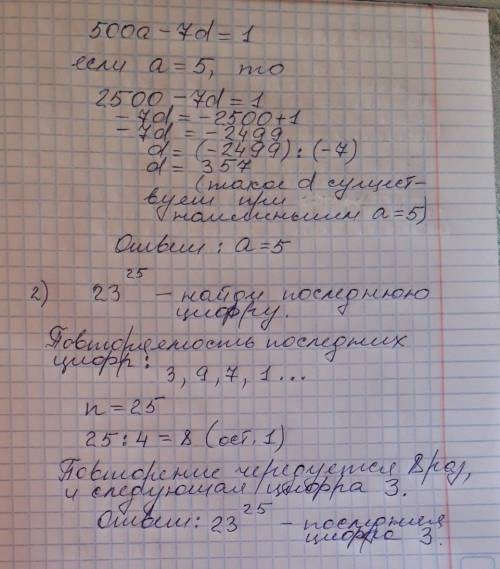 500a - 7d = 1
если a = 5, то
2500 - 7d = 1
- 7d = -2500+1
- 7d = -2499
d = (-2499) : (-7)
d = 357
(такое d сущест-
вует при
наименьшем a=5)
Ответ : a = 5
2) 23²⁵ - найди последнюю
цифру.
Повторяемость последних
цифр : 3, 9, 7, 1 ...
n = 25
25 : 4 = 8 (ост. 1)
Повторение чередуется 8 раз,
и следующая цифра 3.
Ответ: 23²⁵ - последняя
цифра 3.